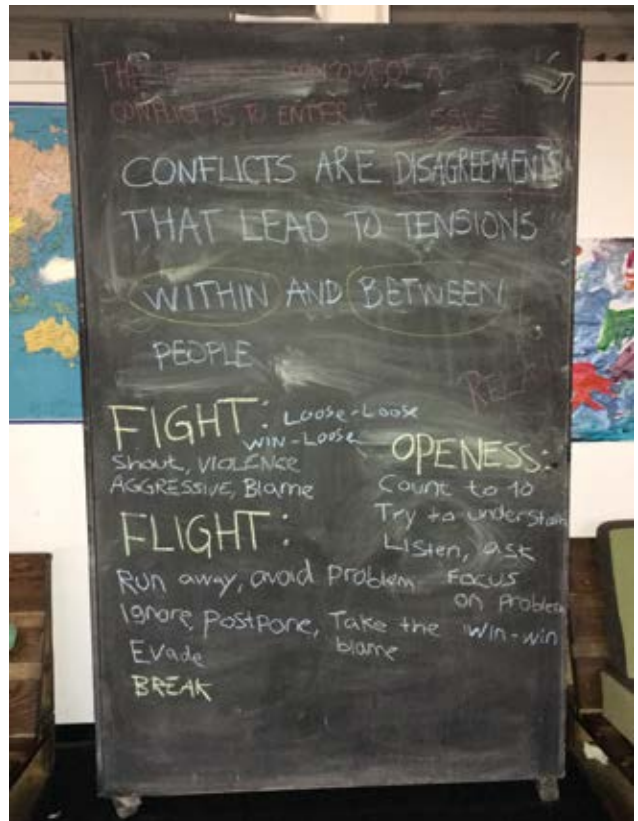 CONFLICT IS TO ENTER IT
CONFLICTS ARE DISAGREEMENTS
THAT LEAD TO TENSIONS
WITHIN AND BETWEEN
PEOPLE
FIGHT: LOOSE-LOOSE
WIN-LOOSE
Shout, VIOLENCE
AGGRESSIVE, Blame
FLIGHT:
Run away, avoid Problem
Ignore, Postpone, Take the blame
Evade
BREAK
OPENESS:
Count to 10
Try to understan
Listen, ask
FOCUS
on Problem
Win-win